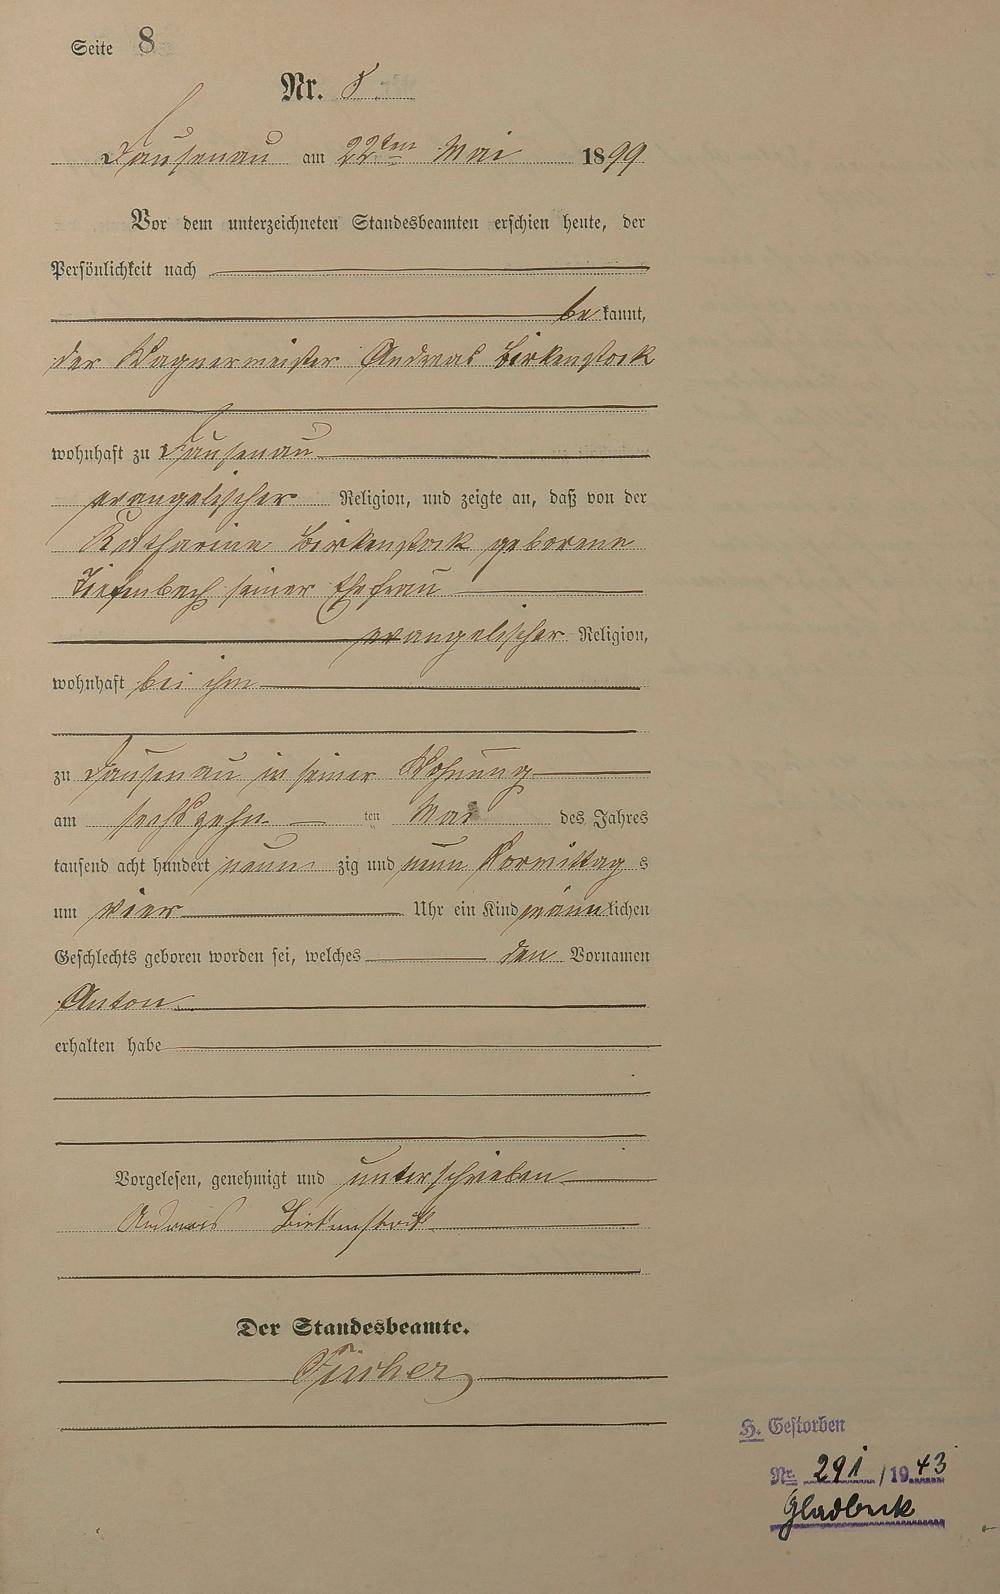 Seite 8
Nr. 8.
Dausenau am 22ten Mai 1899
Vor dem unterzeichneten Standesbeamten erschien heute, der
Persönlichkeit nach
be kannt,
der Wagnermeister Andreas Birkenstock
wohnhaft zu Dausenau
evangelischer Religion, und zeigte an, daß von der
Katharine Birkenstock geborene
Tiefenbach seiner Ehefrau
evangelischer Religion,
wohnhaft bei ihm
zu Dausenau in seiner Wohnung
am sechszehn ten Mai des Jahres
tausend acht hundert neun zig und neun Vormittag s
um vier Uhr ein Kind männlichen
Geschlechts geboren worden sei, welches den Vornamen
Anton
erhalten habe
Vorgelesen, genehmigt und unterschrieben
Andreas Birkenstock
Der Standesbeamte.
H. Gestorben
Nr. 291 / 1943
Gladbeck